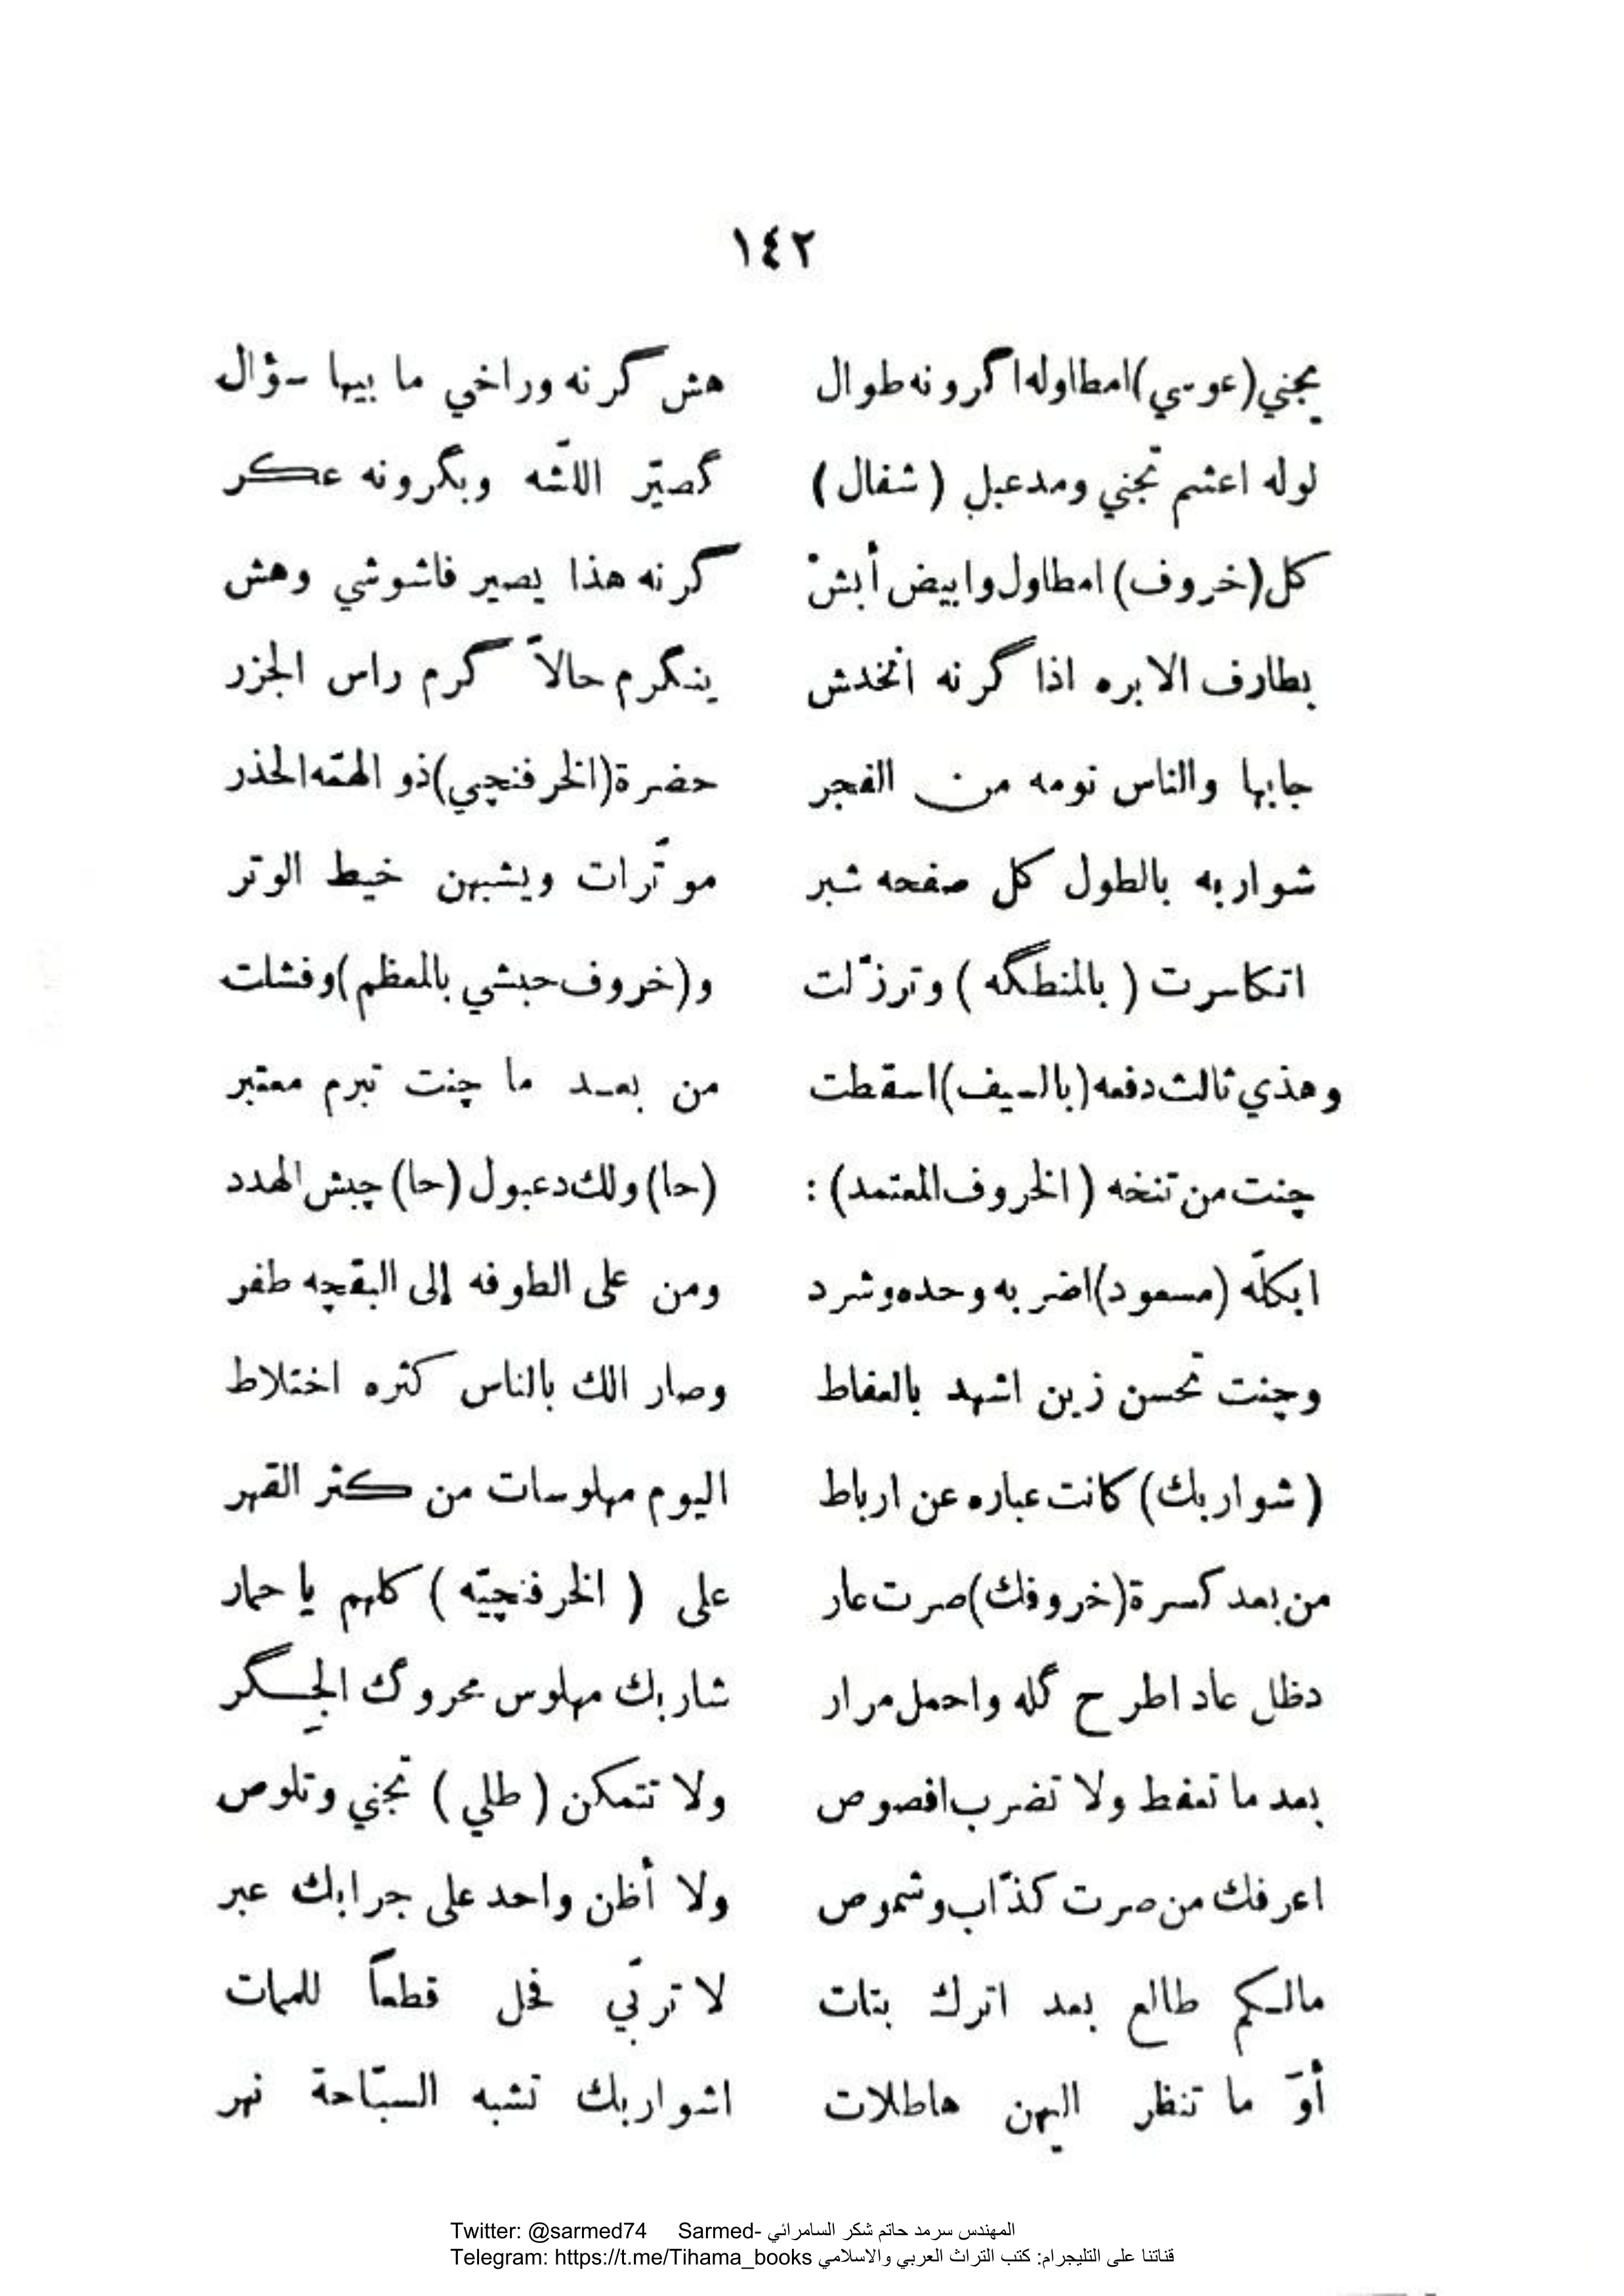 ١٤٢
يجني (عوسي) امطاوله اگرونه طوال هش گرنه وراخي ما بيها سؤال
لوله اعثم تجني ومدعبل (شفال) گصيّر اللثه وبگرونه عكر
كل (خروف) امطاول وابيض أبش گرنه هذا يصير فاشوشي وهش
بطارف الابره اذا گرنه انخدش ينگرم حالاً گرم راس الجزر
جابها والناس نومه من الفجر حضرة (الخرفنچي) ذو الهمّه الحذر
شواربه بالطول كل صفحه شبر موتّرات ويشبهن خيط الوتر
اتكاسرت (بالمنطگه) وترذّلت و(خروف حبشي بالمعظم) وفشلت
وهذي ثالث دفعه (بالسيف) اسقطت من بعد ما چنت تبرم معتبر
چنت من تنخه (الخروف المعتمد) : (حا) ولك دعبول (حا) چبش الهدد
ابكلّه (مسعود) اضربه وحده وشرد ومن على الطوفه إلى البقچه طفر
وچنت تحسن زين اشهد بالعفاط وصار الك بالناس كثره اختلاط
(شواربك) كانت عباره عن ارباط اليوم مهلوسات من كثر القهر
من بعد كسرة (خروفك) صرت عار على (الخرفنچيّه) كلهم يا حمار
دظل عاد اطرح گله واحمل مرار شاربك مهلوس محروگ الچسگر
بعد ما تعفط ولا تضرب افصوص ولا تتمكن (طلي) تجني وتلوص
اعرفك من صرت كذّاب وشموص ولا أظن واحد على جرابك عبر
مالكم طالع بعد اترك بتات لا تربّي فحل قطعاً للممات
أوّ ما تنظر اليهن هاطلات اشواربك تشبه السبّاحة نهر
Twitter: @sarmed74 Sarmed- المهندس سرمد حاتم شكر السامرائي
Telegram: https://t.me/Tihama_books قناتنا على التليجرام: كتب التراث العربي والاسلامي